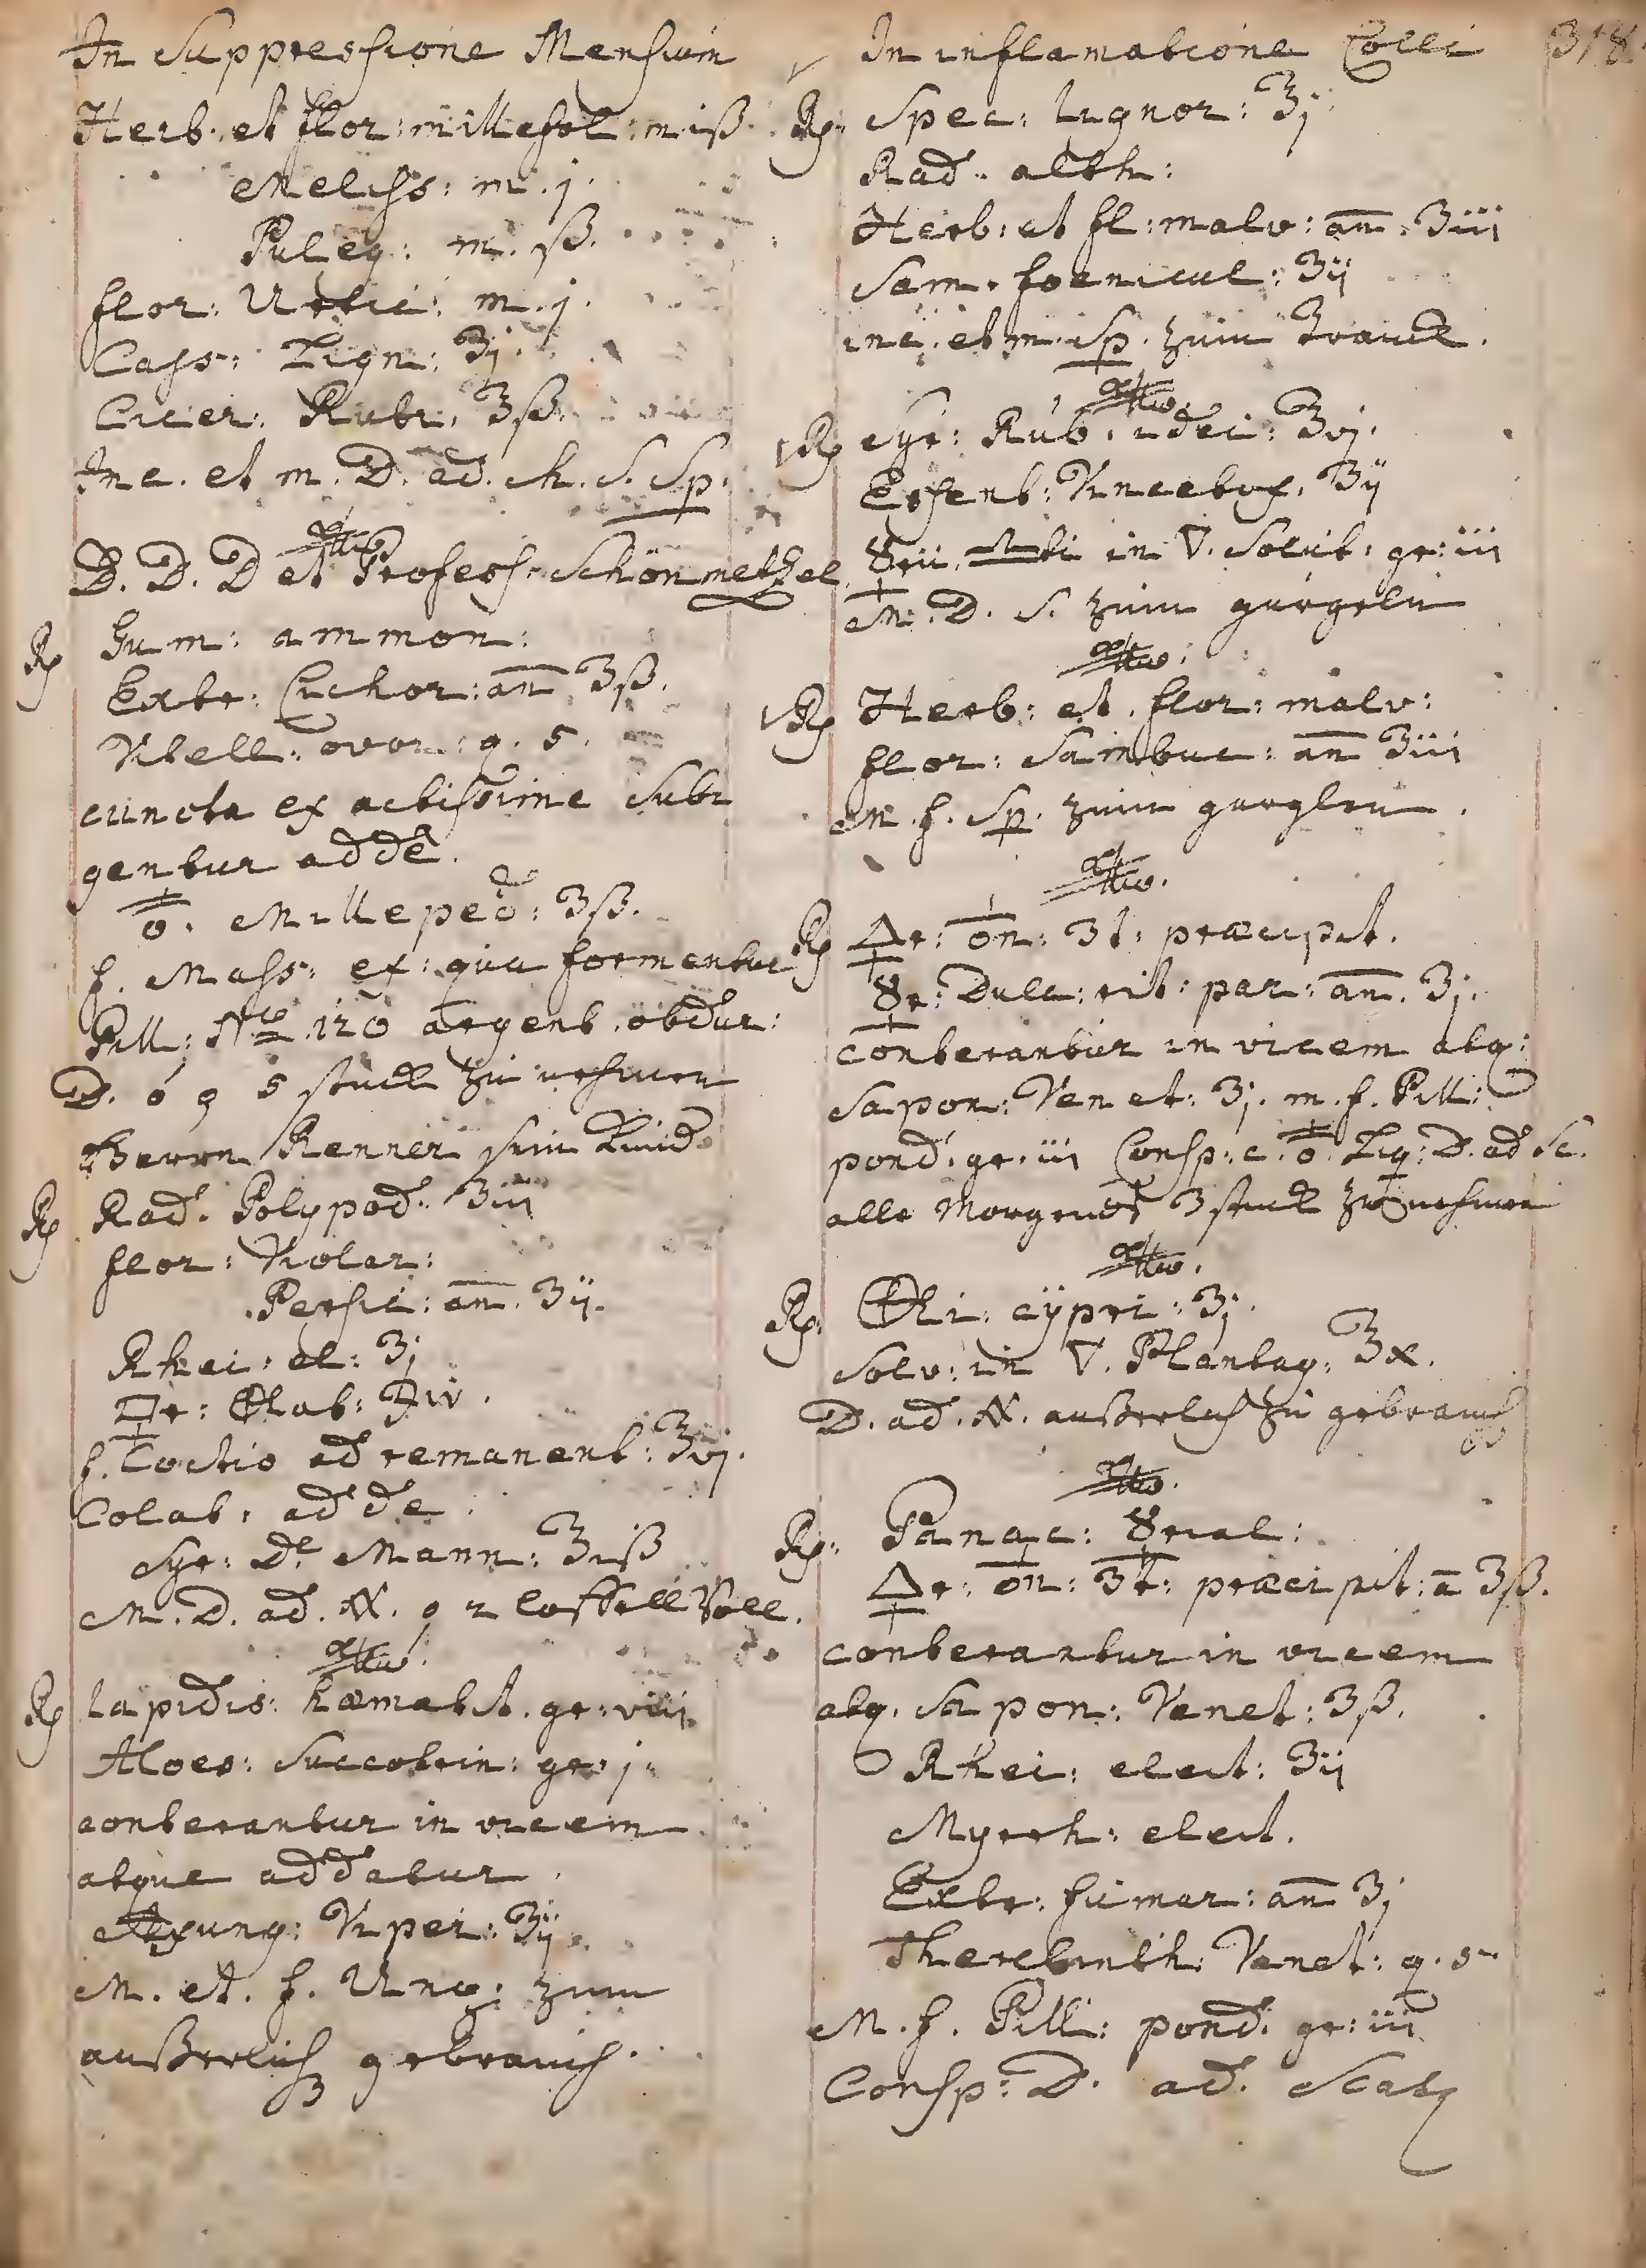 In Suppressione Mensium
Herb. et flor: millefol: m iß.
Meliss: m. j.
Puleg: m. ß.
flor: Urtic: m. j.
Cass: Lign: ʒj.
Cicer: Rubr: ℥ß.
Inc. et m. D. ad. ch. S. Sp.
D. D. D et Profess: Schönmetzel
℞ Gum: ammon:
Extr: Cichor: an̄ ʒß.
Vitell: ovor: q. s.
cuncta exactissime Subi
gentur adde.
Milleped: ʒß.
f. Mass: ex: qua formentur
Pill: No 120 argent. obdur:
D. 5 stuck zu nehmen
Herrn Renner sein Kind
℞ Rad. Polypod. ʒiii
flor: Violar:
Persic: an̄. ʒij.
Rhei: el: ʒj
f. Coctio ad remanent: ℥vj.
Colat: adde:
Syr: De Mann: ℥iß
M. D. ad. N. 2 loffell Voll.
℞ Lapidis: hæmatit. gr: viii
Aloes: Succotrin: gr: j.
conterantur in vicem
atque addatur
Axung: Viper: ʒij.
M. et. f. Ung: zum
außerlich gebrauch.
In inflamatione Colli 318
℞ Spec: lignor: ℥j
Rad. alth:
Herb: et fl: malv: an̄. ʒiii
Sem. foenicul: ʒij
inc. et m. Sp. zum Tranck.
dtto.
℞ Syr: Rub. idei: ℥vj.
Essent: Pinceltuf. ʒij
in ▽. Solut: gr: iii
M. D. S. zum gurgeln
dtto:
℞ Herb: et. flor: malv:
flor: Sambuc: an̄ ʒiii
M. f. Sp. zum gurglen.
dtto.
℞ præcipit.
☿r: Dulc: rit: par: an̄. ʒj.
conterantur in vicem atq:
Sapon: Venet: ʒj. m. f. Pill:
pond: gr: iii Consp: c. Liq: D. ad Sc.
alle Morgends 3 stuck zu nehmen
dtto.
℞ cÿpri: ʒj.
Solv: in ▽. Plantag: ℥x.
D. ad. N. außerlich zu gebrauch
dtto.
℞ Panac: ☿rial:
præcipit: a̅ ʒß.
conterantur in vicem
atq. Sapon: Venet: ʒß.
Rhei: elect: ʒij
Myrrh: elect.
Extr: fumar: an̄ ʒj
Therebinth: Venet: q. s.
M. f. Pill: pond: gr: iii
Consp: D. ad. Scat